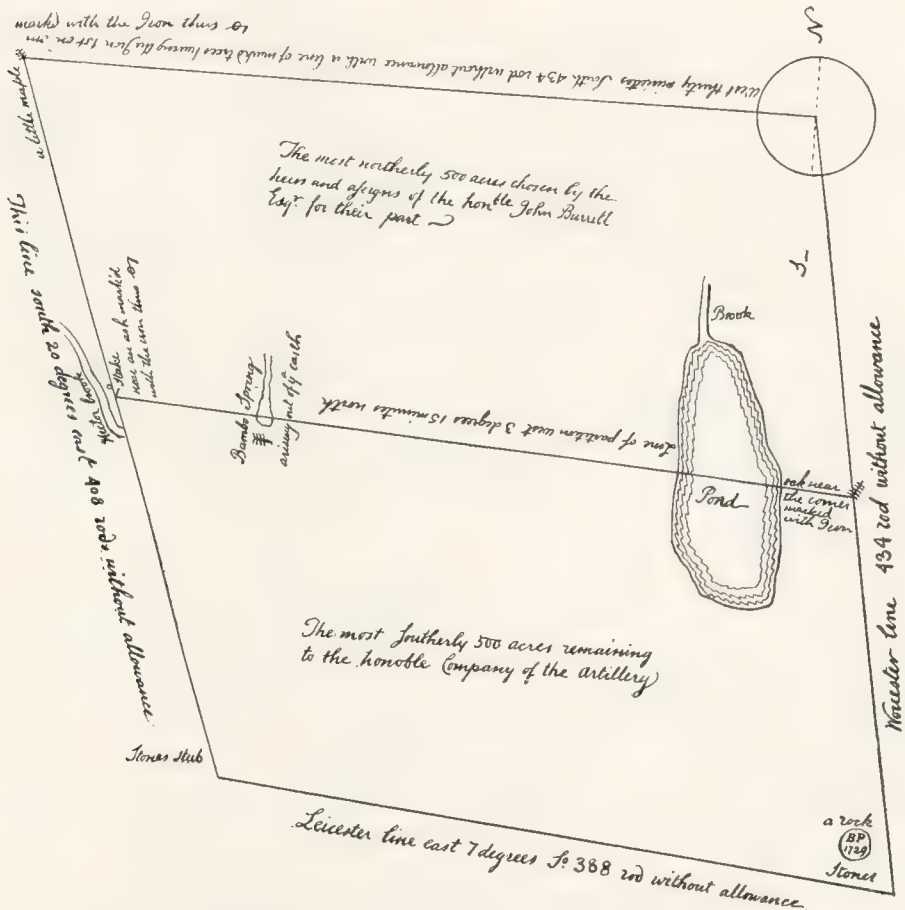 West thirty minutes South 434 rod without allowance with a line of markd trees having the Iron 1st on im
markd with the Iron thus
N
a little maple
The most northerly 500 acres chosen by the
heirs and assigns of the honble John Burrell
Esqr. for their part
S
This line south 20 degrees east 408 rods without allowance
Brook
Stake
near an ash markd
with the iron thus
Bambo Spring
arising out of ye earth
Line of partition west 3 degrees 15 minutes north
Pond
oak near
the corner
marked
with Iron
Worcester line 434 rod without allowance
The most Southerly 500 acres remaining
to the honoble Company of the artillery
Stones Stub
Leicester line east 7 degrees So 388 rod without allowance
a rock
BP
1729
Stones